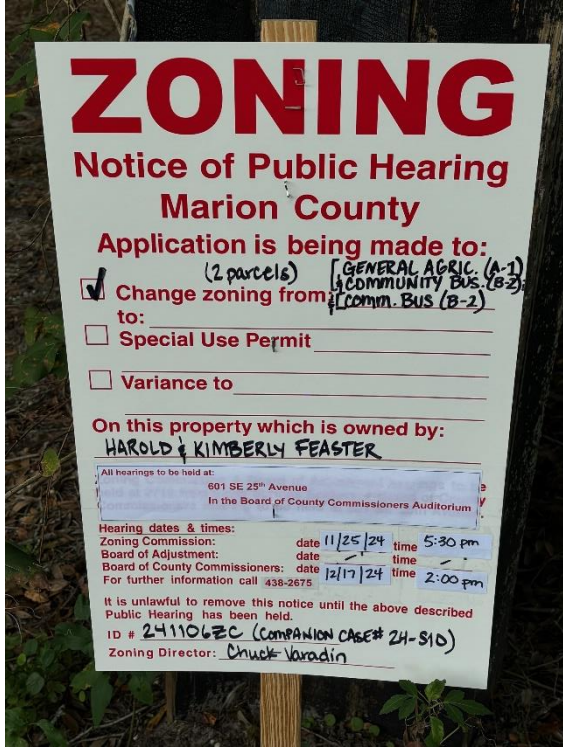 ZONING
Notice of Public Hearing
Marion County
Application is being made to:
(2 parcels) [GENERAL AGRIC. (A-1)
& COMMUNITY BUS. (B-2)
Change zoning from: & [COMM. BUS (B-2)
to:
Special Use Permit
Variance to
On this property which is owned by:
HAROLD & KIMBERLY FEASTER
All hearings to be held at:
601 SE 25th Avenue
In the Board of County Commissioners Auditorium
Hearing dates & times:
Zoning Commission: date 11/25/24 time 5:30 pm
Board of Adjustment: date -/- time -/-
Board of County Commissioners: date 12/17/24 time 2:00 pm
For further information call 438-2675
It is unlawful to remove this notice until the above described
Public Hearing has been held.
ID # 241106ZC (COMPANION CASE# 24-S10)
Zoning Director: Chuck Varadin